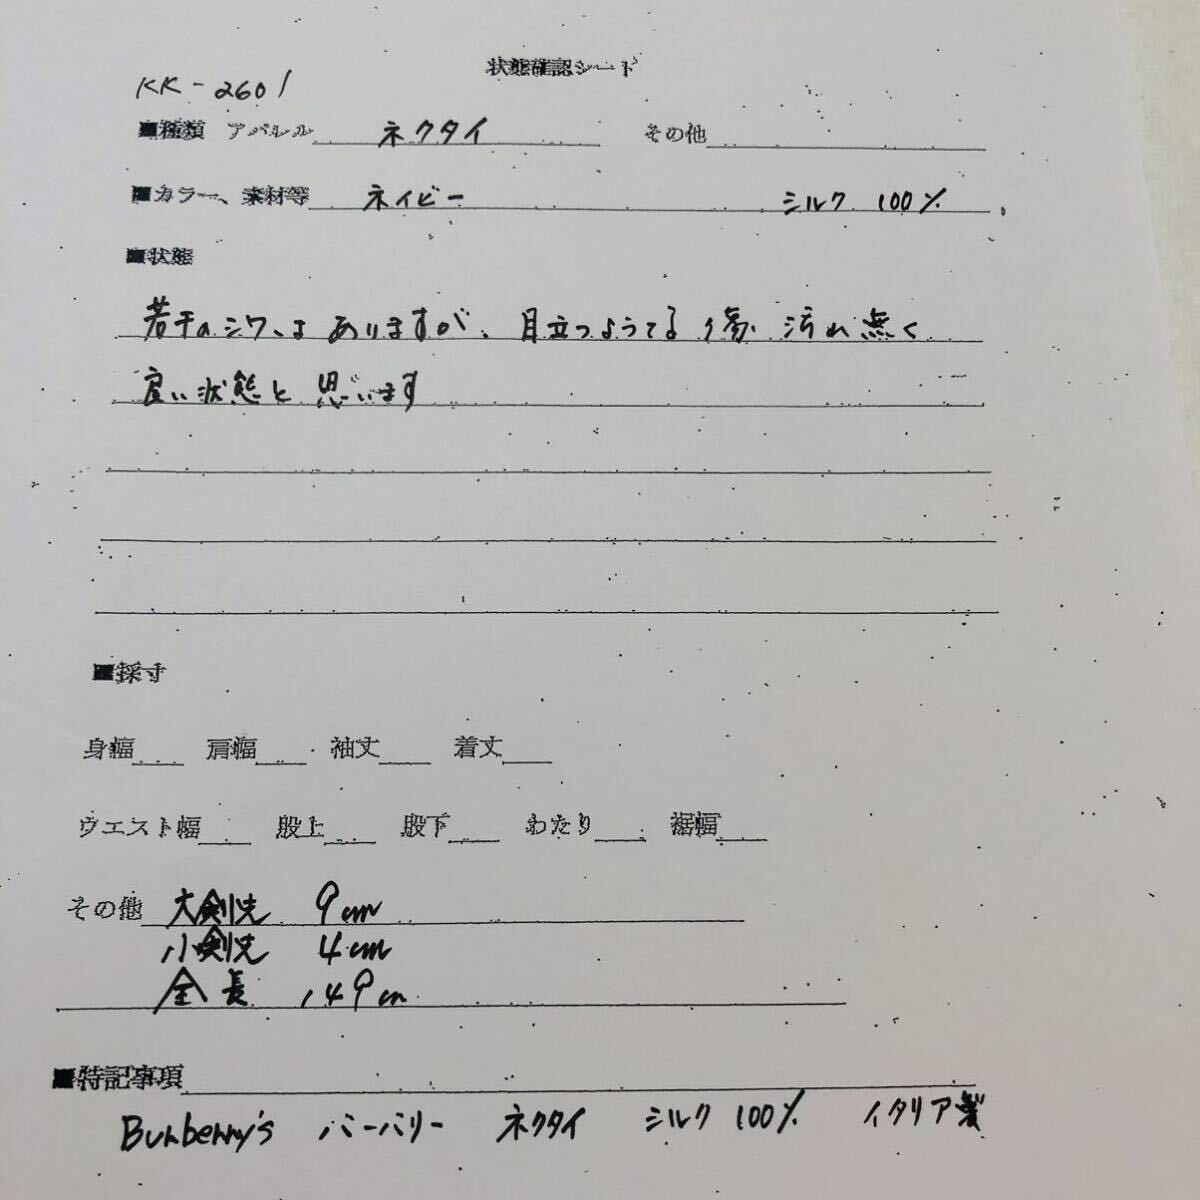 状態確認シート
KK-2601
■種類 アパレル ネクタイ その他
■カラー、素材等 ネイビー シルク 100%
■状態
若干のシワはありますが、目立つような傷 汚れ無く
良い状態と思います
■採寸
身幅 肩幅 袖丈 着丈
ウエスト幅 股上 股下 わたり 裾幅
その他 大剣先 9cm
小剣先 4cm
全長 149cm
■特記事項
Burberry's バーバリー ネクタイ シルク 100% イタリア製